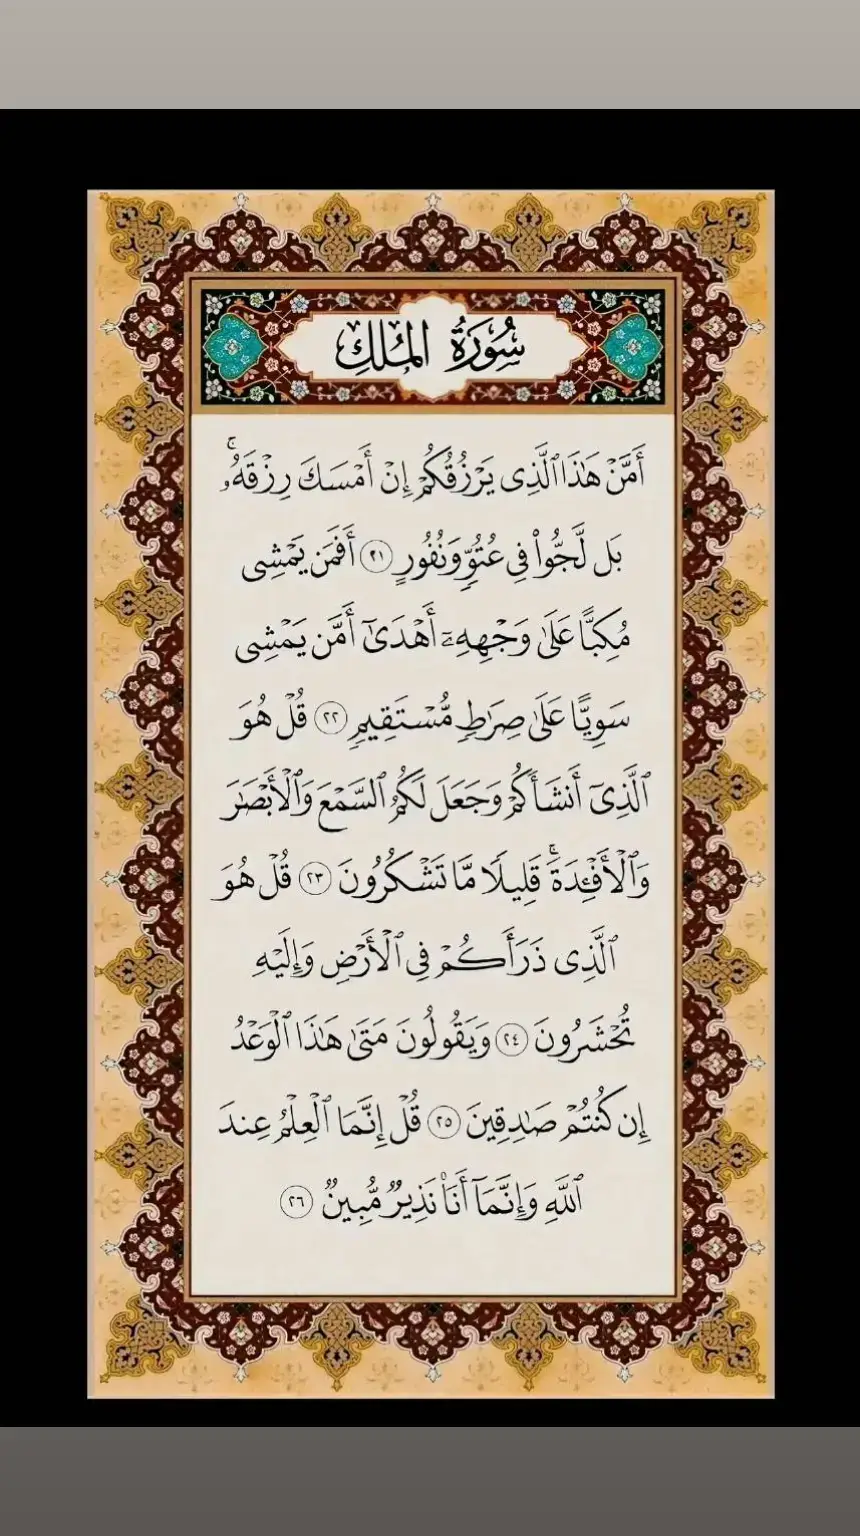 سُورَةُ المُلكِ
أَمَّنۡ هَٰذَا ٱلَّذِى يَرۡزُقُكُمۡ إِنۡ أَمۡسَكَ رِزۡقَهُۥۚ
بَل لَّجُّوا۟ فِى عُتُوٍّۢ وَنُفُورٍ ٢١ أَفَمَن يَمۡشِى
مُكِبًّا عَلَىٰ وَجۡهِهِۦٓ أَهۡدَىٰٓ أَمَّن يَمۡشِى
سَوِيًّا عَلَىٰ صِرَٰطٍۢ مُّسۡتَقِيمٍۢ ٢٢ قُلۡ هُوَ
ٱلَّذِىٓ أَنشَأَكُمۡ وَجَعَلَ لَكُمُ ٱلسَّمۡعَ وَٱلۡأَبۡصَٰرَ
وَٱلۡأَفۡـِٔدَةَۚ قَلِيلًۭا مَّا تَشۡكُرُونَ ٢٣ قُلۡ هُوَ
ٱلَّذِى ذَرَأَكُمۡ فِى ٱلۡأَرۡضِ وَإِلَيۡهِ
تُحۡشَرُونَ ٢٤ وَيَقُولُونَ مَتَىٰ هَٰذَا ٱلۡوَعۡدُ
إِن كُنتُمۡ صَٰدِقِينَ ٢٥ قُلۡ إِنَّمَا ٱلۡعِلۡمُ عِندَ
ٱللَّهِ وَإِنَّمَآ أَنَا۠ نَذِيرٌۭ مُّبِينٌۭ ٢٦